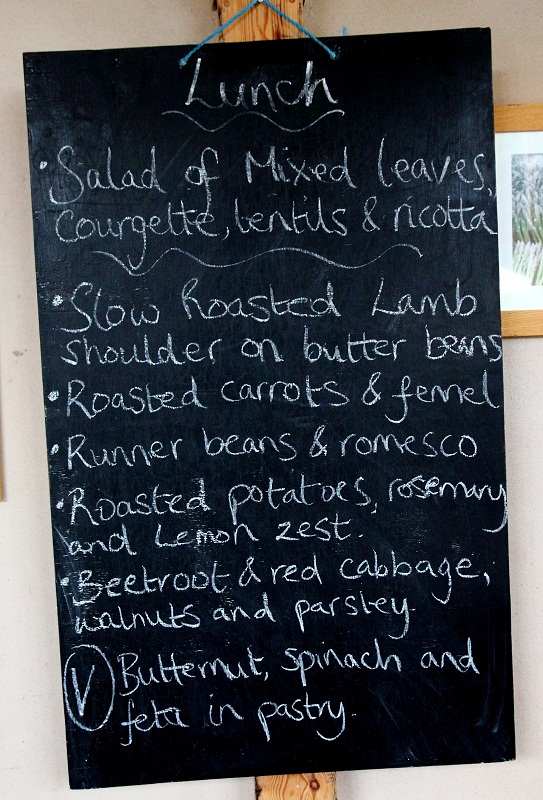 Lunch
• Salad of Mixed leaves,
courgette, lentils & ricotta
• Slow Roasted Lamb
shoulder on butter beans
• Roasted carrots & fennel
• Runner beans & romesco
• Roasted potatoes, rosemary
and Lemon zest.
• Beetroot & red cabbage,
walnuts and parsley.
V Butternut, spinach and
feta in pastry.